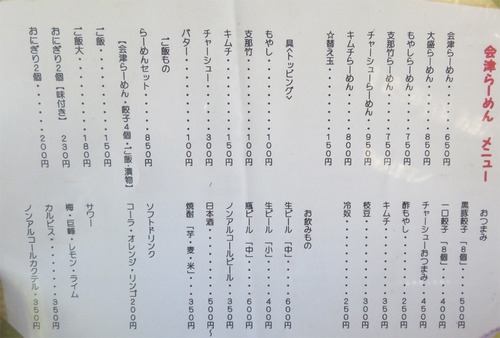 会津らーめん メニュー
会津らーめん・・・・650円
大盛らーめん・・・・850円
もやしらーめん・・・750円
支那竹らーめん・・・750円
チャーシューらーめん・950円
キムチらーめん・・・800円
☆替え玉・・・・・・150円
具<トッピング>
もやし・・・・・・・100円
支那竹・・・・・・・100円
キムチ・・・・・・・150円
チャーシュー・・・・300円
バター・・・・・・・100円
ご飯もの
らーめんセット・・・・850円
【会津らーめん・餃子4個・ご飯・漬物】
ご飯・・・・・・・・150円
ご飯大・・・・・・・180円
おにぎり2個【味付き】 230円
おにぎり2個・・・・・200円
おつまみ
黒豚餃子「8個」・・・500円
一口餃子「8個」・・・400円
チャーシューおつまみ・450円
酢もやし・・・・・・250円
キムチ・・・・・・・300円
枝豆・・・・・・・・300円
冷奴・・・・・・・・250円
お飲みもの
生ビール「中」・・・600円
生ビール「小」・・・400円
瓶ビール「中」・・・600円
ノンアルコールビール・350円
日本酒・・・・・・・500円〜
焼酎「芋・麦・米」・・350円
ソフトドリンク
コーラ・オレンジ・リンゴ200円
サワー
梅・巨峰・レモン・ライム
・・・・・・・・350円
カルピス・・・・・・350円
ノンアルコールカクテル・350円